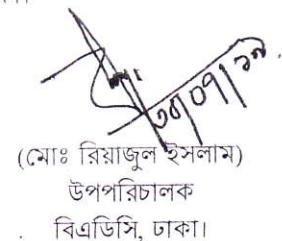 ৩০/০৭/১৯
(মোঃ রিয়াজুল ইসলাম)
উপপরিচালক
বিএডিসি, ঢাকা।